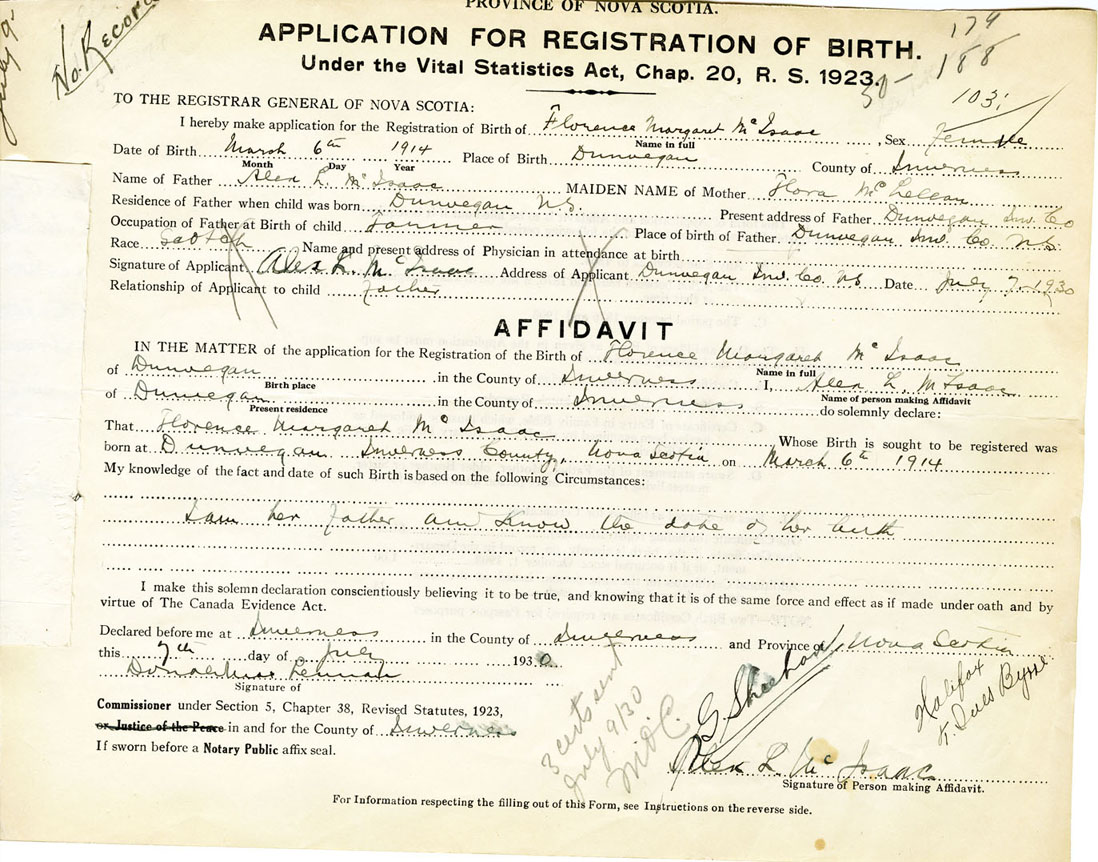 PROVINCE OF NOVA SCOTIA.
No. Record
July 9-
APPLICATION FOR REGISTRATION OF BIRTH.
Under the Vital Statistics Act, Chap. 20, R. S. 1923.
174
188
30-
103
TO THE REGISTRAR GENERAL OF NOVA SCOTIA:
I hereby make application for the Registration of Birth of Florence Margaret McIsaac, Sex Female
Name in full
Date of Birth March 6th 1914 Place of Birth Dunvegan County of Inverness
Month Day Year
Name of Father Alex L. McIsaac MAIDEN NAME of Mother Flora McLellan
Residence of Father when child was born Dunvegan N.S. Present address of Father Dunvegan Inv. Co
Occupation of Father at Birth of child Farmer Place of birth of Father Dunvegan Inv. Co. N.S.
Race Scotch Name and present address of Physician in attendance at birth
Signature of Applicant Alex L. McIsaac Address of Applicant Dunvegan Inv. Co. NS Date July 7-1930
Relationship of Applicant to child Father
AFFIDAVIT
IN THE MATTER of the application for the Registration of the Birth of Florence Margaret McIsaac
Name in full
of Dunvegan in the County of Inverness I, Alex L. McIsaac
Birth place Name of person making Affidavit
of Dunvegan in the County of Inverness do solemnly declare:
Present residence
That Florence Margaret McIsaac, Whose Birth is sought to be registered was
born at Dunvegan Inverness County, Nova Scotia on March 6th 1914
My knowledge of the fact and date of such Birth is based on the following Circumstances:
I am her father and know the date of her birth
I make this solemn declaration conscientiously believing it to be true, and knowing that it is of the same force and effect as if made under oath and by
virtue of The Canada Evidence Act.
Declared before me at Inverness in the County of Inverness and Province of Nova Scotia
this 7th day of July 1930
Signature of
Commissioner under Section 5, Chapter 38, Revised Statutes, 1923,
or Justice of the Peace in and for the County of Inverness
If sworn before a Notary Public affix seal.
3 certs sent
July 9/30
G. Sheehan
Halifax
Alex L. McIsaac
Signature of Person making Affidavit.
For Information respecting the filling out of this Form, see Instructions on the reverse side.